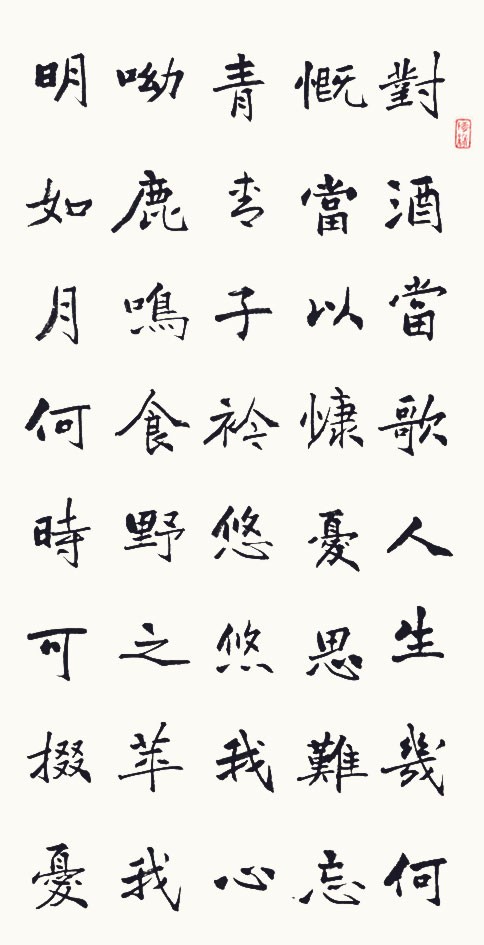 對酒當歌人生幾何
慨當以慷憂思難忘
青青子衿悠悠我心
呦鹿鳴食野之苹我
明如月何時可掇憂